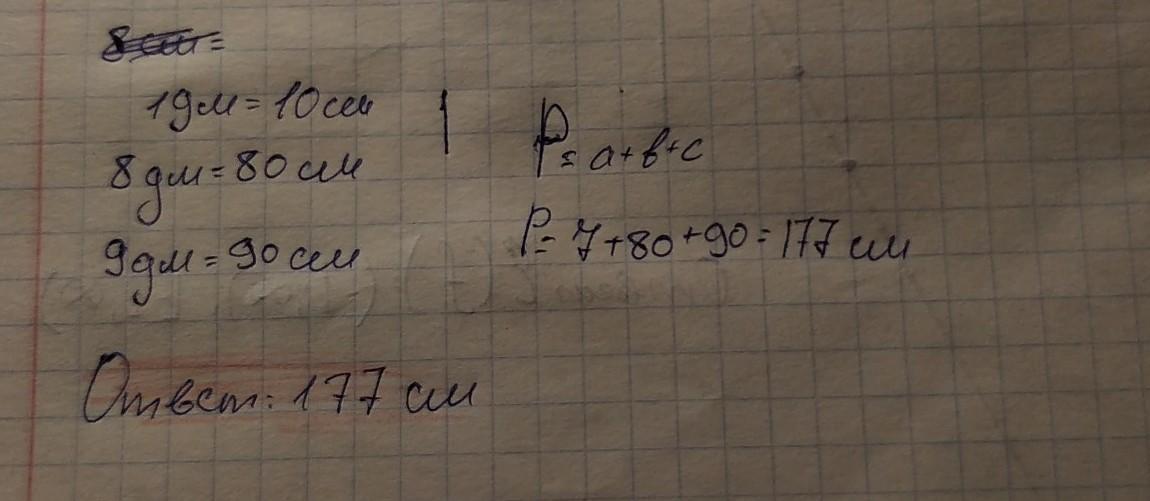 1дм = 10см
8дм = 80см
9дм = 90см
P = a + b + c
P = 7 + 80 + 90 = 177 см
Ответ: 177 см